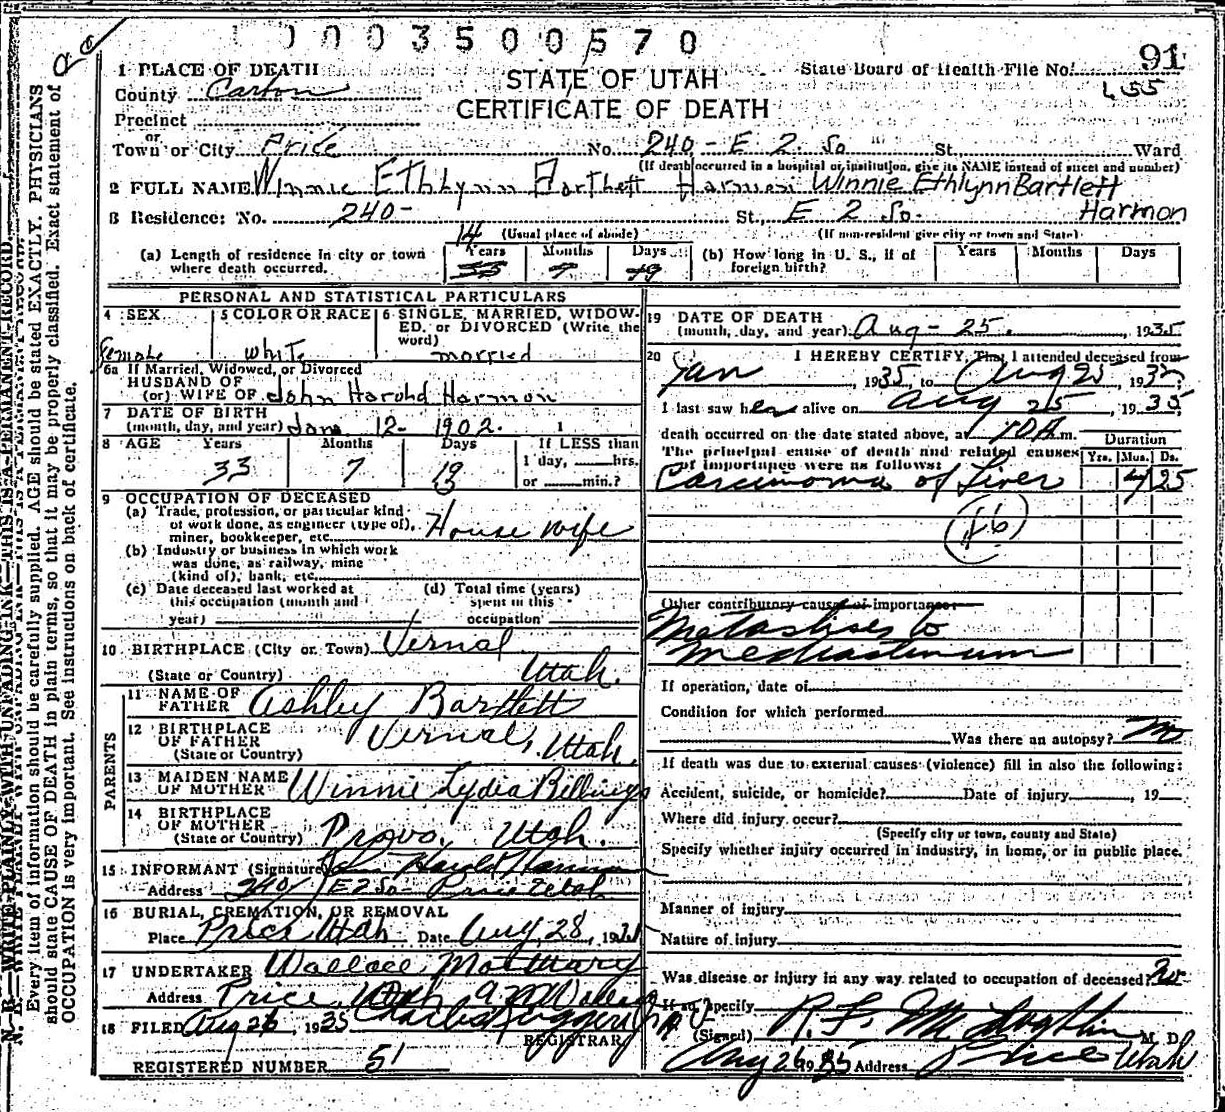 0003500570
91
1 PLACE OF DEATH
STATE OF UTAH
State Board of Health File No. 455
County Carbon
CERTIFICATE OF DEATH
Precinct
or
Town or City Price No. 240 - E 2. So St. Ward
(If death occurred in a hospital or institution, give its NAME instead of street and number)
2 FULL NAME Winnie Ethlynn Bartlett Harmon Winnie Ethlynn Bartlett
Harmon
3 Residence: No. 240- St., E 2 So.
(Usual place of abode) (If non-resident give city or town and State)
14
(a) Length of residence in city or town where death occurred. Years 33 Months 7 Days
(b) How long in U. S., if of foreign birth? Years Months Days
PERSONAL AND STATISTICAL PARTICULARS
4 SEX Female
5 COLOR OR RACE White
6 SINGLE, MARRIED, WIDOWED, or DIVORCED (Write the word) married
6a If Married, Widowed, or Divorced
HUSBAND OF
(or) WIFE OF John Harold Harmon
7 DATE OF BIRTH
(month, day, and year) Jan 12- 1902. 1
8 AGE Years Months Days If LESS than
33 7 13 1 day, hrs.
or min.?
9 OCCUPATION OF DECEASED
(a) Trade, profession, or particular kind
of work done, as engineer (type of),
miner, bookkeeper, etc. House wife
(b) Industry or business in which work
was done, as railway, mine
(kind of), bank, etc.
(c) Date deceased last worked at
this occupation (month and
year)
(d) Total time (years)
spent in this
occupation
10 BIRTHPLACE (City or Town) Vernal
(State or Country) Utah.
PARENTS
11 NAME OF
FATHER Ashley Bartlett
12 BIRTHPLACE
OF FATHER Vernal, Utah.
(State or Country)
13 MAIDEN NAME
OF MOTHER Winnie Lydia Billings
14 BIRTHPLACE
OF MOTHER
(State or Country) Provo. Utah.
15 INFORMANT (Signature) John Harold Harmon
Address 240 E 2 So Price Utah
16 BURIAL, CREMATION, OR REMOVAL
Place Price Utah Date Aug, 28, 193
17 UNDERTAKER Wallace Mortuary
Address Price Utah
18 FILED Aug 26, 1935
REGISTRAR
REGISTERED NUMBER 51
19 DATE OF DEATH
(month, day, and year) Aug - 25. , 1935
20 I HEREBY CERTIFY, That I attended deceased from
Jan , 1935, to Aug 25, 1935,
I last saw her alive on Aug 25, 1935,
death occurred on the date stated above, at 10 A m.
The principal cause of death and related causes
of importance were as follows:
Duration
Yrs. Mos. Ds.
Carcinoma of Liver 7 25
46
Other contributory causes of importance:
Metastises to
mediastinum
If operation, date of
Condition for which performed
Was there an autopsy? no
If death was due to external causes (violence) fill in also the following:
Accident, suicide, or homicide? Date of injury , 19
Where did injury occur?
(Specify city or town, county and State)
Specify whether injury occurred in industry, in home, or in public place.
Manner of injury
Nature of injury
Was disease or injury in any way related to occupation of deceased? No
If so, specify
(Signed) M. D.
Aug 26 1935 Address Price Utah
N. B.—WRITE PLAINLY WITH UNFADING INK—THIS IS A PERMANENT RECORD.
Every item of information should be carefully supplied. AGE should be stated EXACTLY. PHYSICIANS
should state CAUSE OF DEATH in plain terms, so that it may be properly classified. Exact statement of
OCCUPATION is very important. See instructions on back of certificate.